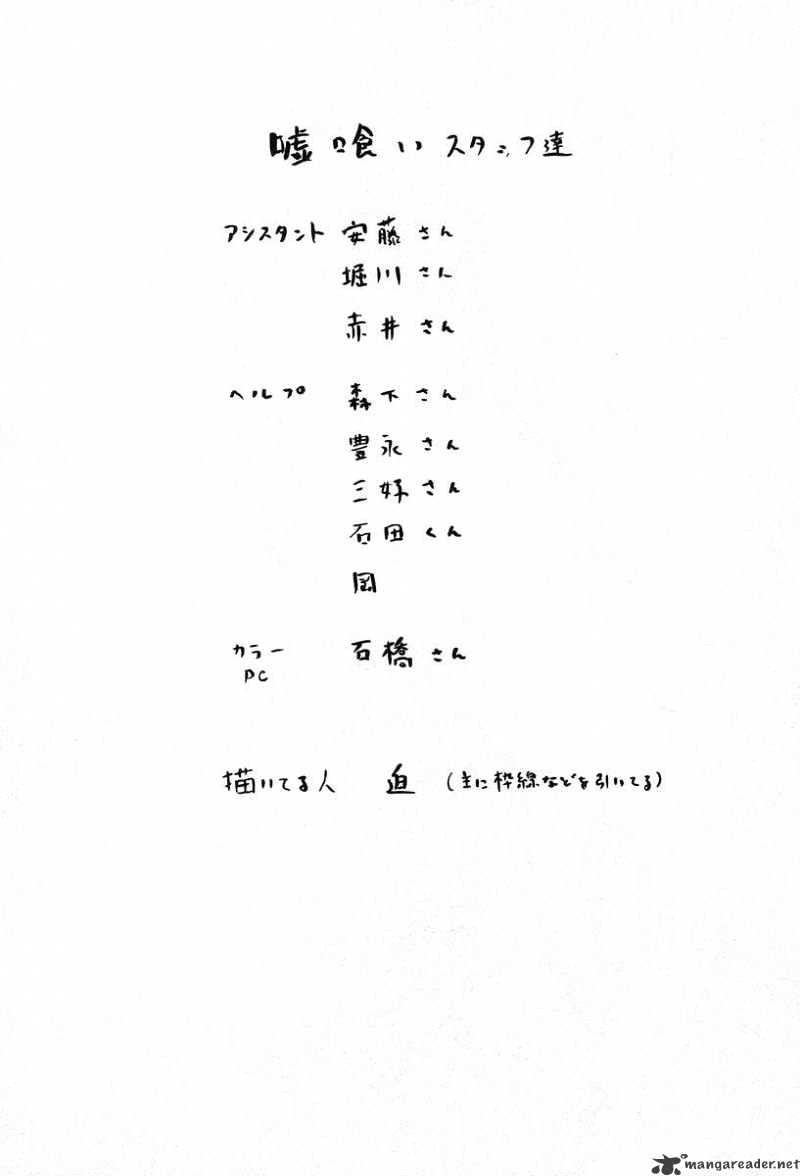 嘘喰いスタッフ達
アシスタント 安藤さん
堀川さん
赤井さん
ヘルプ 森下さん
豊永さん
三好さん
石田くん
岡
カラー PC 石橋さん
描いてる人 迫 (主に枠線などを引いてる)
mangareader.net